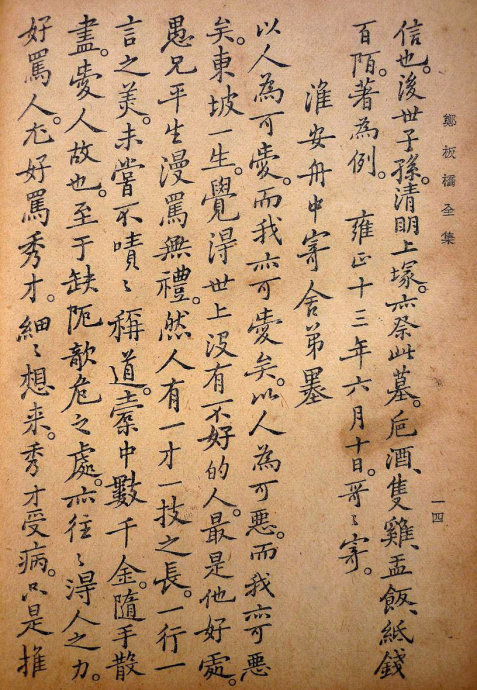 鄭板橋全集
一四
信也。後世子孫。清明上塚。亦祭此墓。卮酒、隻雞、盂飯、紙錢
百陌。著為例。雍正十三年六月十日。哥〻寄。
淮安舟中寄舍弟墨
以人為可愛。而我亦可愛矣。以人為可惡。而我亦可惡
矣。東坡一生。覺得世上沒有不好的人。最是他好處。
愚兄平生漫罵無禮。然人有一才一技之長。一行一
言之美。未嘗不嘖〻稱道。橐中數千金。隨手散
盡。愛人故也。至于缺阨欹危之處。亦往〻得人之力。
好罵人。尤好罵秀才。細〻想來。秀才受病。只是推